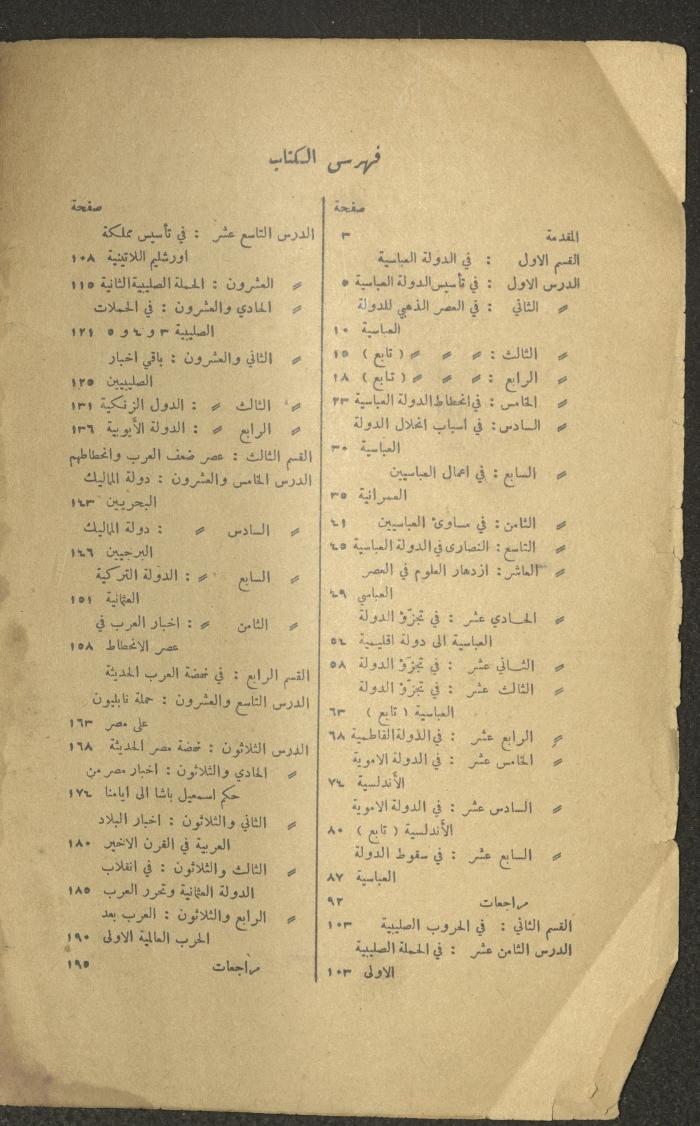 فهرس الكتاب
صفحة
المقدمة ٣
القسم الاول : في الدولة العباسية
الدرس الاول : في تأسيس الدولة العباسية ٥
〃 الثاني : في العصر الذهبي للدولة
العباسية ١٠
〃 الثالث : 〃 〃 〃 ( تابع ) ١٥
〃 الرابع : 〃 〃 〃 ( تابع ) ١٨
〃 الخامس : في انحطاط الدولة العباسية ٢٣
〃 السادس : في اسباب انحلال الدولة
العباسية ٣٠
〃 السابع : في اعمال العباسيين
العمرانية ٣٥
〃 الثامن : في مساوئ العباسيين ٤١
〃 التاسع : النصارى في الدولة العباسية ٤٥
〃 العاشر : ازدهار العلوم في العصر
العباسي ٤٩
〃 الحادي عشر : في تجزؤ الدولة
العباسية الى دولة اقليمية ٥٤
〃 الثاني عشر : في تجزؤ الدولة ٥٨
〃 الثالث عشر : في تجزؤ الدولة
العباسية ( تابع ) ٦٣
〃 الرابع عشر : في الدولة الفاطمية ٦٨
〃 الخامس عشر : في الدولة الاموية
الأندلسية ٧٤
〃 السادس عشر : في الدولة الاموية
الأندلسية ( تابع ) ٨٠
〃 السابع عشر : في سقوط الدولة
العباسية ٨٧
مراجعات ٩٢
القسم الثاني : في الحروب الصليبية ١٠٣
الدرس الثامن عشر : في الحملة الصليبية
الاولى ١٠٣
صفحة
الدرس التاسع عشر : في تأسيس مملكة
اورشليم اللاتينية ١٠٨
〃 العشرون : الحملة الصليبية الثانية ١١٥
〃 الحادي والعشرون : في الحملات
الصليبية ٣ و ٤ و ٥ ١٢١
〃 الثاني والعشرون : باقي اخبار
الصليبيين ١٢٥
〃 الثالث 〃 : الدول الزنكية ١٣١
〃 الرابع 〃 : الدولة الأيوبية ١٣٦
القسم الثالث : عصر ضعف العرب وانحطاطهم
الدرس الخامس والعشرون : دولة المماليك
البحريين ١٤٣
〃 السادس 〃 : دولة المماليك
البرجيين ١٤٦
〃 السابع 〃 : الدولة التركية
العثمانية ١٥١
〃 الثامن 〃 : اخبار العرب في
عصر الانحطاط ١٥٨
القسم الرابع : في نهضة العرب الحديثة
الدرس التاسع والعشرون : حملة نابليون
على مصر ١٦٣
الدرس الثلاثون : نهضة مصر الحديثة ١٦٨
〃 الحادي والثلاثون : اخبار مصر من
حكم اسمعيل باشا الى ايامنا ١٧٤
〃 الثاني والثلاثون : اخبار البلاد
العربية في القرن الاخير ١٨٠
〃 الثالث والثلاثون : في انقلاب
الدولة العثمانية وتحرر العرب ١٨٥
〃 الرابع والثلاثون : العرب بعد
الحرب العالمية الاولى ١٩٠
مراجعات ١٩٥